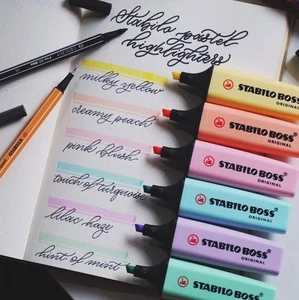 Stabilo pastel
highlighters
milky yellow
creamy peach
pink blush
touch of turquoise
lilac haze
hint of mint
STABILO BOSS
ORIGINAL
STABILO BOSS
ORIGINAL
STABILO BOSS
ORIGINAL
STABILO BOSS
ORIGINAL
STABILO BOSS
ORIGINAL
STABILO BOSS
ORIGINAL